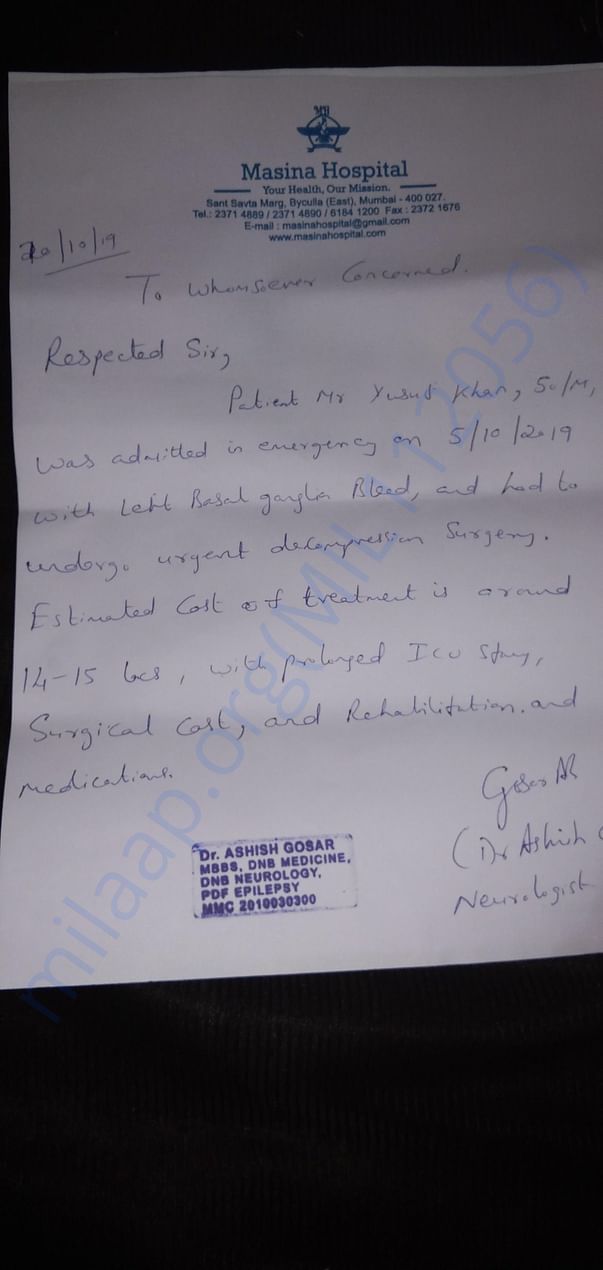 MH
Masina Hospital
Your Health, Our Mission.
Sant Savta Marg, Byculla (East), Mumbai - 400 027.
Tel.: 2371 4889 / 2371 4890 / 6184 1200 Fax : 2372 1676
E-mail : masinahospital@gmail.com
www.masinahospital.com
20/10/19
To Whomsoever Concerned.
Respected Sir,
Patient Mr Yusuf Khan, 50/M,
was admitted in emergency on 5/10/2019
with Left Basal ganglia Bleed, and had to
undergo urgent decompression Surgery.
Estimated Cost of treatment is around
14-15 lacs, with prolonged ICU Stay,
Surgical Cost, and Rehabilitation. and
medications.
Gosar AR
(Dr Ashish
Neurologist
Dr. ASHISH GOSAR
MBBS, DNB MEDICINE,
DNB NEUROLOGY,
PDF EPILEPSY
MMC 2010030300
milaap.org(MIL112056)